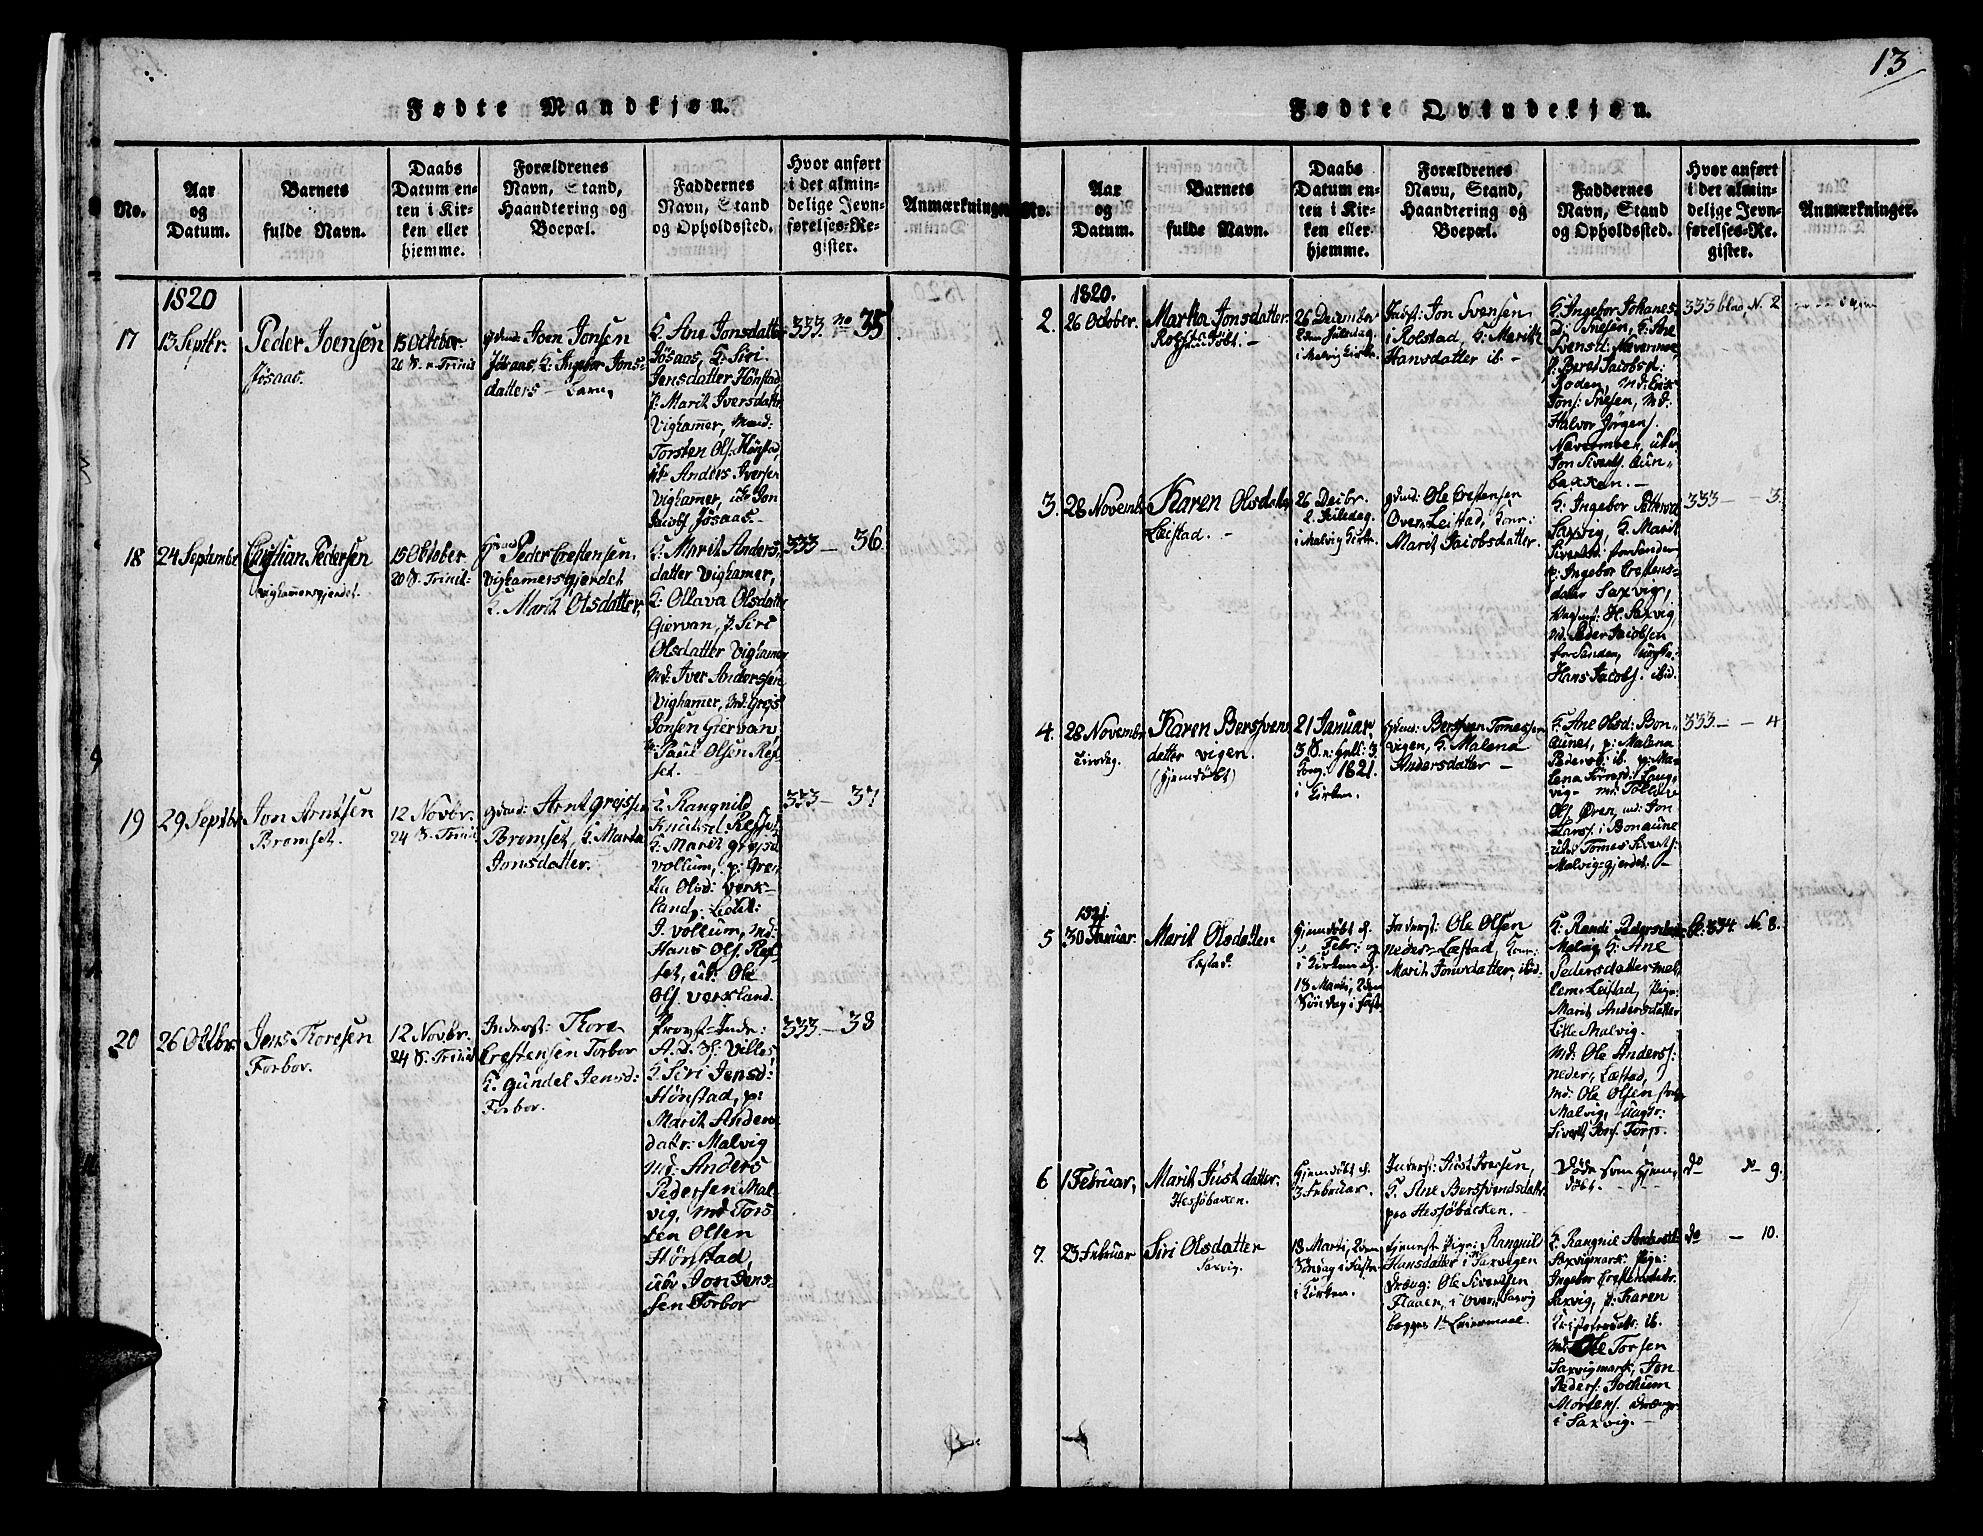 Fødte Mandkjøn.
No.
Aar
og
Datum.
Barnets
fulde Navn.
Daabs
Datum en-
ten i Kir-
ken eller
hjemme.
Forældrenes
Navn, Stand,
Haandtering og
Boepæl.
Faddernes
Navn, Stand
og Opholdssted.
Hvor anført
i det almin-
delige Jevn-
førelses-Re-
gister.
Anmærkninger
1820
17
13 Septbr.
Peder Joensen
Jøsaas.
15 October
20 S. n. Trinit
Joen Jonsen
Jøsaas, K. Ingebor Jons-
datters
K. Ane Jonsdatter
Jøsaas, K. Siri
Jensdatter Hønstad
p: Marit Iversdattr
Vighamer, md:
Torsten Ols. Hønstad,
Anders Iversen
Vighamer, uk Jon
Jacobs. Jøsaas.
333 no 35
18
24 Septembr
Christian Pedersen
Vighammersgjerdet.
15 Oktober
20 S. Trinit:
Peder Crestensen
Vighamersgjerdet
K. Marit Olsdatter,
K. Marit Anders-
datter Vighamer,
K. Ollava Olsdatter
Giervan, p. Siri
Olsdatter Vighamer
md: Iver Anderssen
Vighamer, md: Grejs
Jonsen Giervan
Paul Olsen Rep-
set.
333 — 36
19
29 Septbr
Jon Arntsen
Bromset.
12 Novbr.
24 S. Trinit
Arnt Grejssen
Bromset, K. Marta
Jonsdatter.
K. Rangnild
Knudsd. Repset,
K. Marit Grejsd.
Vollum, p: Gre-
Olsd: Verk-
land,
J. Vollum, md:
Hans Ols. Rep-
set, uk: Ole
Ols. Verkland.
333 — 37
20
26 Octbr.
Jens Thoresen
Forbor.
12 Novbr.
24 S. Trinit
Inderst: Thore
Crestensen Forbor
K. Gundel Jensd:
Forbor.
Provst-Inde:
K. Siri Jensd:
Hønstad, p:
Marit Anders
datr: Malvig
Md: Anders
Pedersen Mal-
vig, md Tors-
ten Olsen
Hønstad,
ukr Jon Jens-
sen Forbor
333 — 38
13
Fødte Qvindekjøn.
No.
Aar
og
Datum.
Barnets
fulde Navn.
Daabs
Datum en-
ten i Kir-
ken eller
hjemme.
Forældrenes
Navn, Stand,
Haandtering og
Boepæl.
Faddernes
Navn, Stand
og Opholdssted.
Hvor anført
i det almin-
delige Jevn-
førelses-Re-
gister.
Anmærkninger.
1820.
2.
26 October.
Marta Jonsdatter
26 December
2den Juledag.
i Malvig Kirke.
Jon Svensen
i Rolstad, K. Marit
Hansdatter ib. —
K. Ingebor Johanes-
d: Snesen, K. Ane
Svensd: Nævermoe,
p. Beret Jacobsd:
Roden, md: Erik
Jons: Snesen, md:
Halvor Jørgens.
Nævermoen, uk
Jon Siverts. Aun-
bakken. —
333 blad N. 2
3.
28 Novembr
Karen Olsdatter
Leistad. —
26 Decbr.
2. Juledag.
i Malvig Kirke.
Ole Crestensen
Over Leistad,
Marit Jacobsdatter.
K. Ingebor Pettersd
Saxvig, K. Marit
Sivertsd:
p. Ingebor Crestens-
datter Saxvig,
H. Saxvig,
md. Peder Jacobsen
Hans Jacobs. ibid.
333 — — 3.
4.
28 Novembr
Tirsdag.
Karen Bersvens
datter Vigen.
(hjemdøbt)
21 Januar.
3 S.
1821.
i Kirken.
Bersven Tomessen
Vigen, K. Malena
Andersdatter —
K. Ane Olsd: Bon-
aunet, p: Malena
Pedersd: ib. p: Ma-
lena
vig — md:
Ols. Øren, md: Jon
Lars. i Bonaune
Tomes Siverts:
Malvig-gjerdet. —
333 — — 4
1821.
5
30 Januar.
Marit Olsdatter
Leistad.
hjemdøbt d.
Febr: og
i Kirken d.
18 Marti, 2den
Søndag i Fast
Inderst: Ole Olsen
neder Læstad, Kone:
Marit Jonsdatter, ibid:
K. Randi Pedersdatter
Malvig, K. Ane
Pedersdatter mel-
lem Leistad, Pige:
Marit Andersdatter
Lille Malvig.
Md: Ole Anderss:
neder, Læstad,
md: Ole Olsen
Malvig, Ungkr:
Sivert Jons. Torp.
334. N. 8.
6
1 Februar,
Marit Just datter.
Hessjøbaken.
Hjemdøbt d.
3 Februar.
Inderst: Just
K. Ane Bersvendsdattr
paa Hessjøbacken. —
Døde som hjem-
døbt. —
do do 9.
7.
23 Februar
Siri Olsdatter
Saxvig.
18 Marti, 2den
Søndag i Fasten
i Kirken.
tjenest Pige: Rangnil
Hansdatter i Saxvigen
Ole Sivertsen
Flaaen, i Over: Saxvig
begges 1te Leiermaal.
K. Rangnil Andersdtr
Saxvigmark. Pige:
Ingebor Crestensdattr.
Saxvig, p. Karen
ib.
md: Ole Torsen
Saxvigmark, Jon
Peders. Jochum
Mortens.
i Saxvig. —
do — 10.